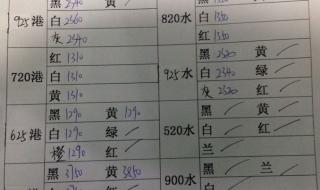 黑 2340 黄 /
925港 白 2360
灰 2340
红 1310
720港 白 1310
黄 1310
黑 1290 黄 1290
625港 白 1290 绿 /
橙 1290 红 /
黑 3750 黄 3850
红 1350
820水 白 1350
灰 1350
黑 2320 黄 /
925水 白 2340 绿 /
灰 2320 红 /
黑 / 黄 /
520水 白 / 红 /
兰 /
黑 / 兰 /
900水 白